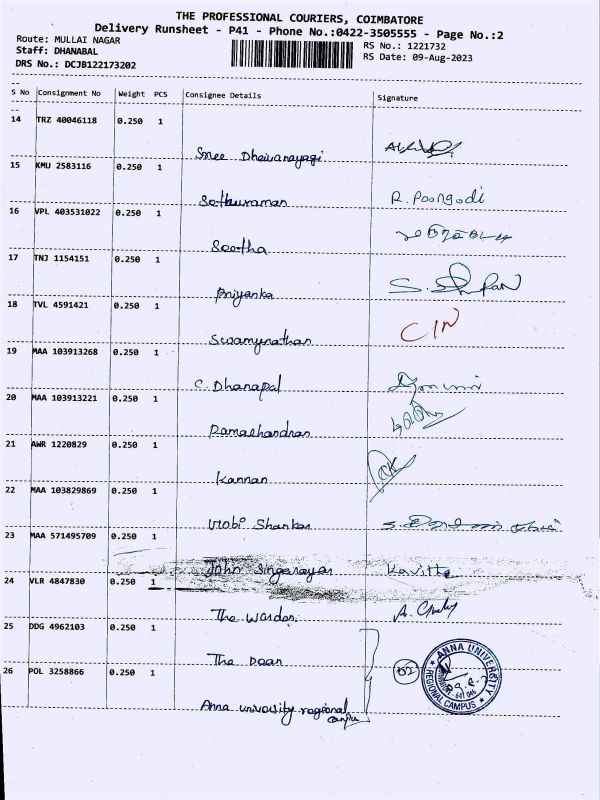 THE PROFESSIONAL COURIERS, COIMBATORE
Delivery Runsheet - P41 - Phone No.:0422-3505555 - Page No.:2
Route: MULLAI NAGAR
Staff: DHANABAL
DRS No.: DCJB122173202
RS No.: 1221732
RS Date: 09-Aug-2023
S No Consignment No Weight PCS Consignee Details Signature
14 TRZ 40046118 0.250 1
Sree Dheivanayagi
15 KMU 2583116 0.250 1
Sethuraman R. Poongodi
16 VPL 403531022 0.250 1
Seetha
17 TNJ 1154151 0.250 1
Priyanka
18 TVL 4591421 0.250 1
Swamynathan CIN
19 MAA 103913268 0.250 1
C. Dhanapal
20 MAA 103913221 0.250 1
Ramachandran
21 AWR 1220829 0.250 1
Kannan
22 MAA 103829869 0.250 1
Shankar
23 MAA 571495709 0.250 1
John Singarayar Kavitha
24 VLR 4847830 0.250 1
The Warden
25 DDG 4962103 0.250 1
The Dean
26 POL 3258866 0.250 1
02
ANNA UNIVERSITY
REGIONAL CAMPUS
Anna university regional
campus